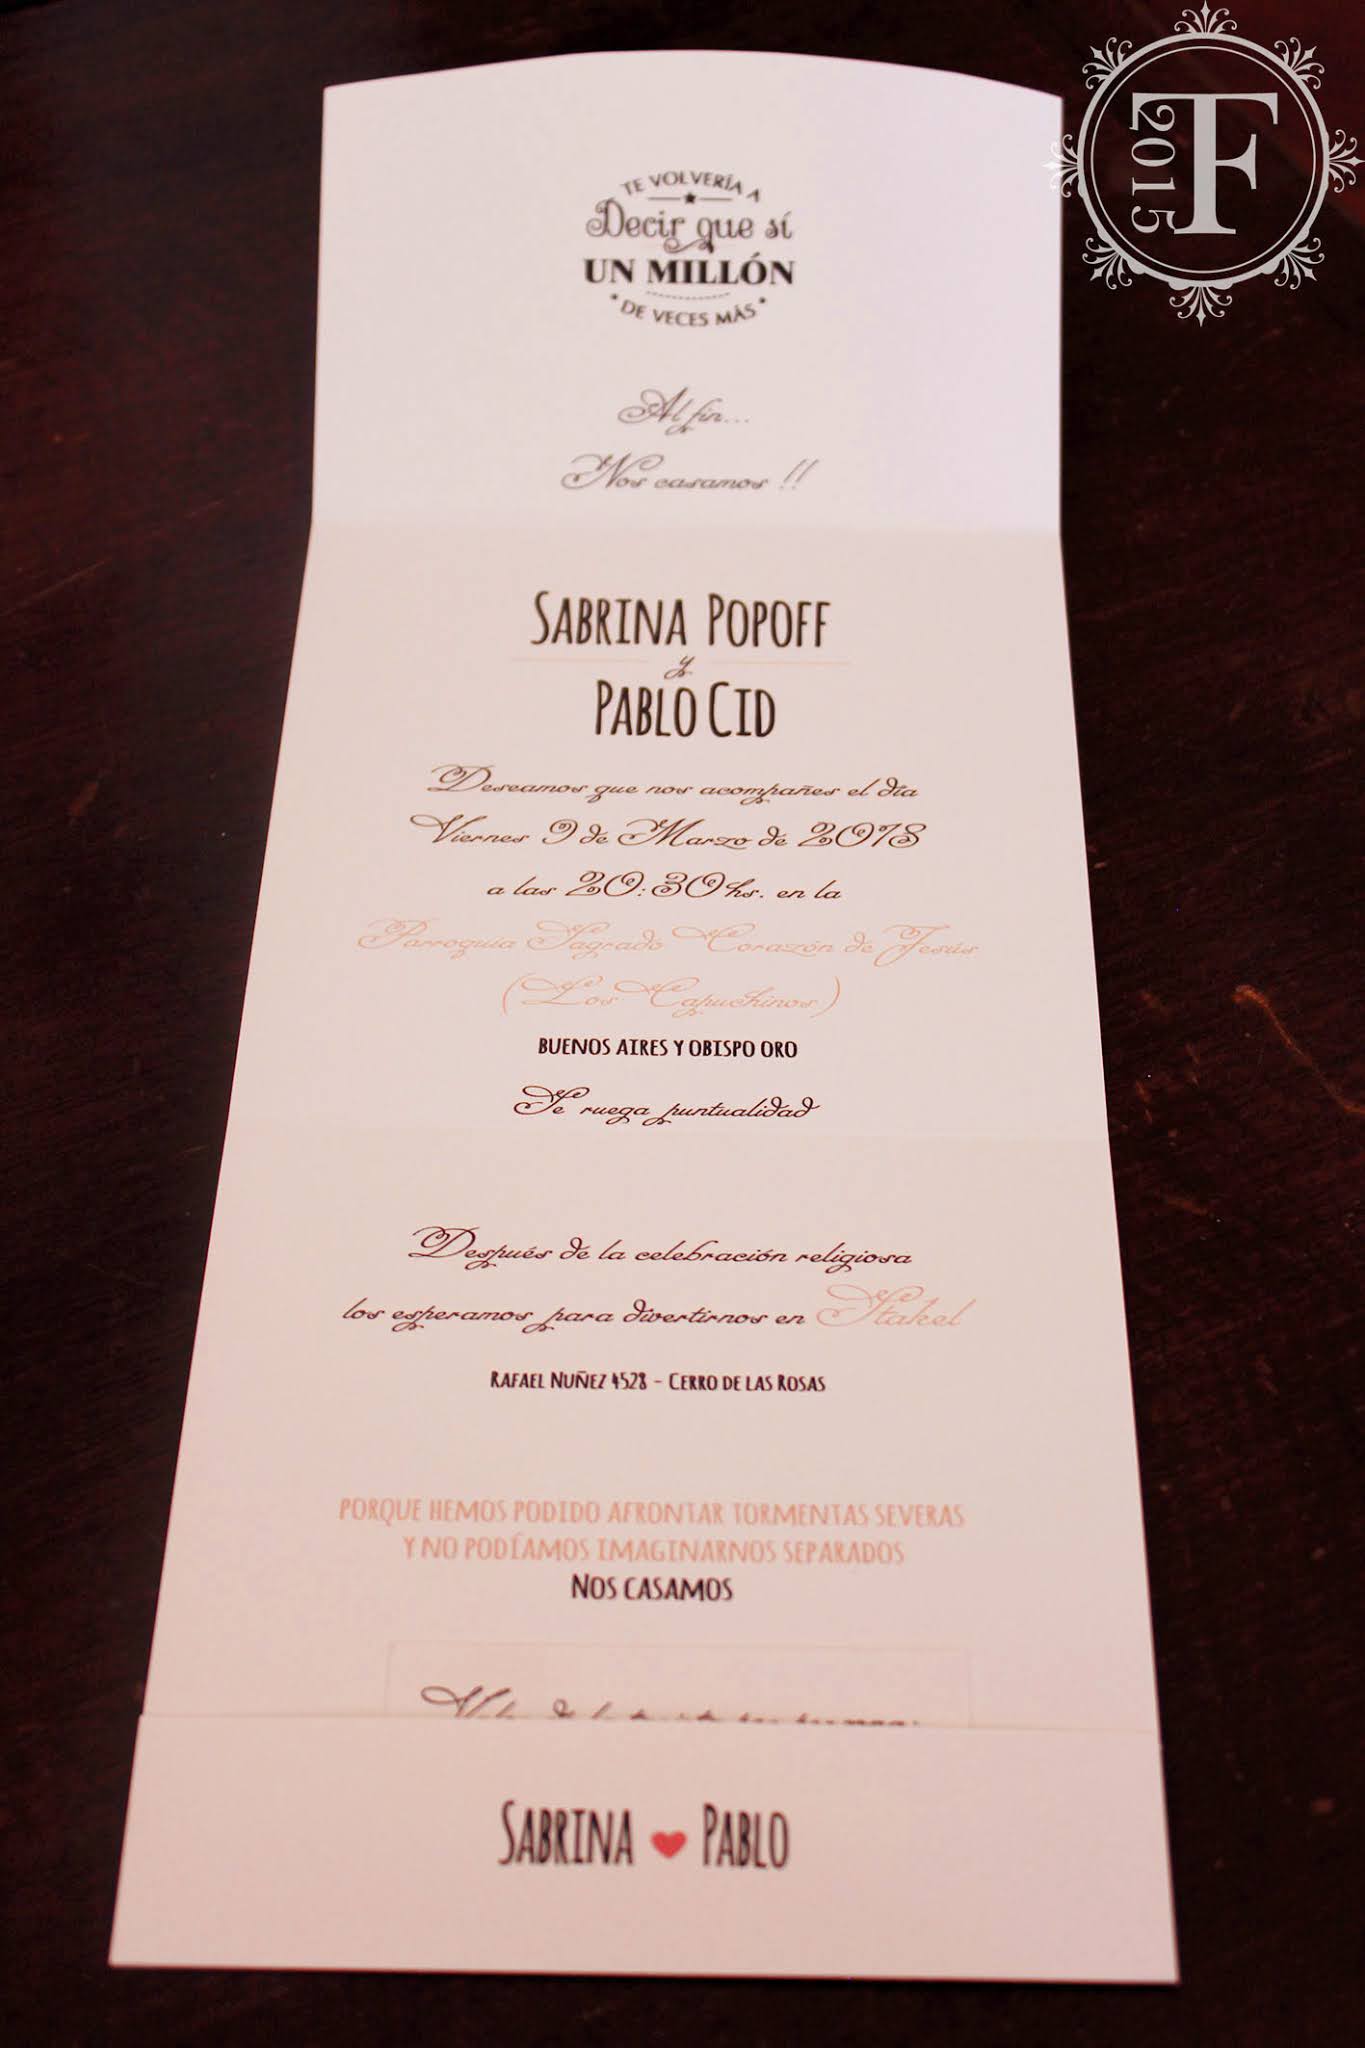 TE VOLVERÍA A
Decir que sí
UN MILLÓN
DE VECES MÁS
Al fin...
Nos casamos !!
SABRINA POPOFF
y
PABLO CID
Deseamos que nos acompañes el día
Viernes 9 de Marzo de 2018
a las 20:30 hs. en la
Parroquia Sagrado Corazón de Jesús
(Los Capuchinos)
BUENOS AIRES Y OBISPO ORO
Se ruega puntualidad
Después de la celebración religiosa
los esperamos para divertirnos en Stakel
RAFAEL NUÑEZ 4528 - CERRO DE LAS ROSAS
PORQUE HEMOS PODIDO AFRONTAR TORMENTAS SEVERAS
Y NO PODÍAMOS IMAGINARNOS SEPARADOS
NOS CASAMOS
SABRINA ❤ PABLO
F
2015